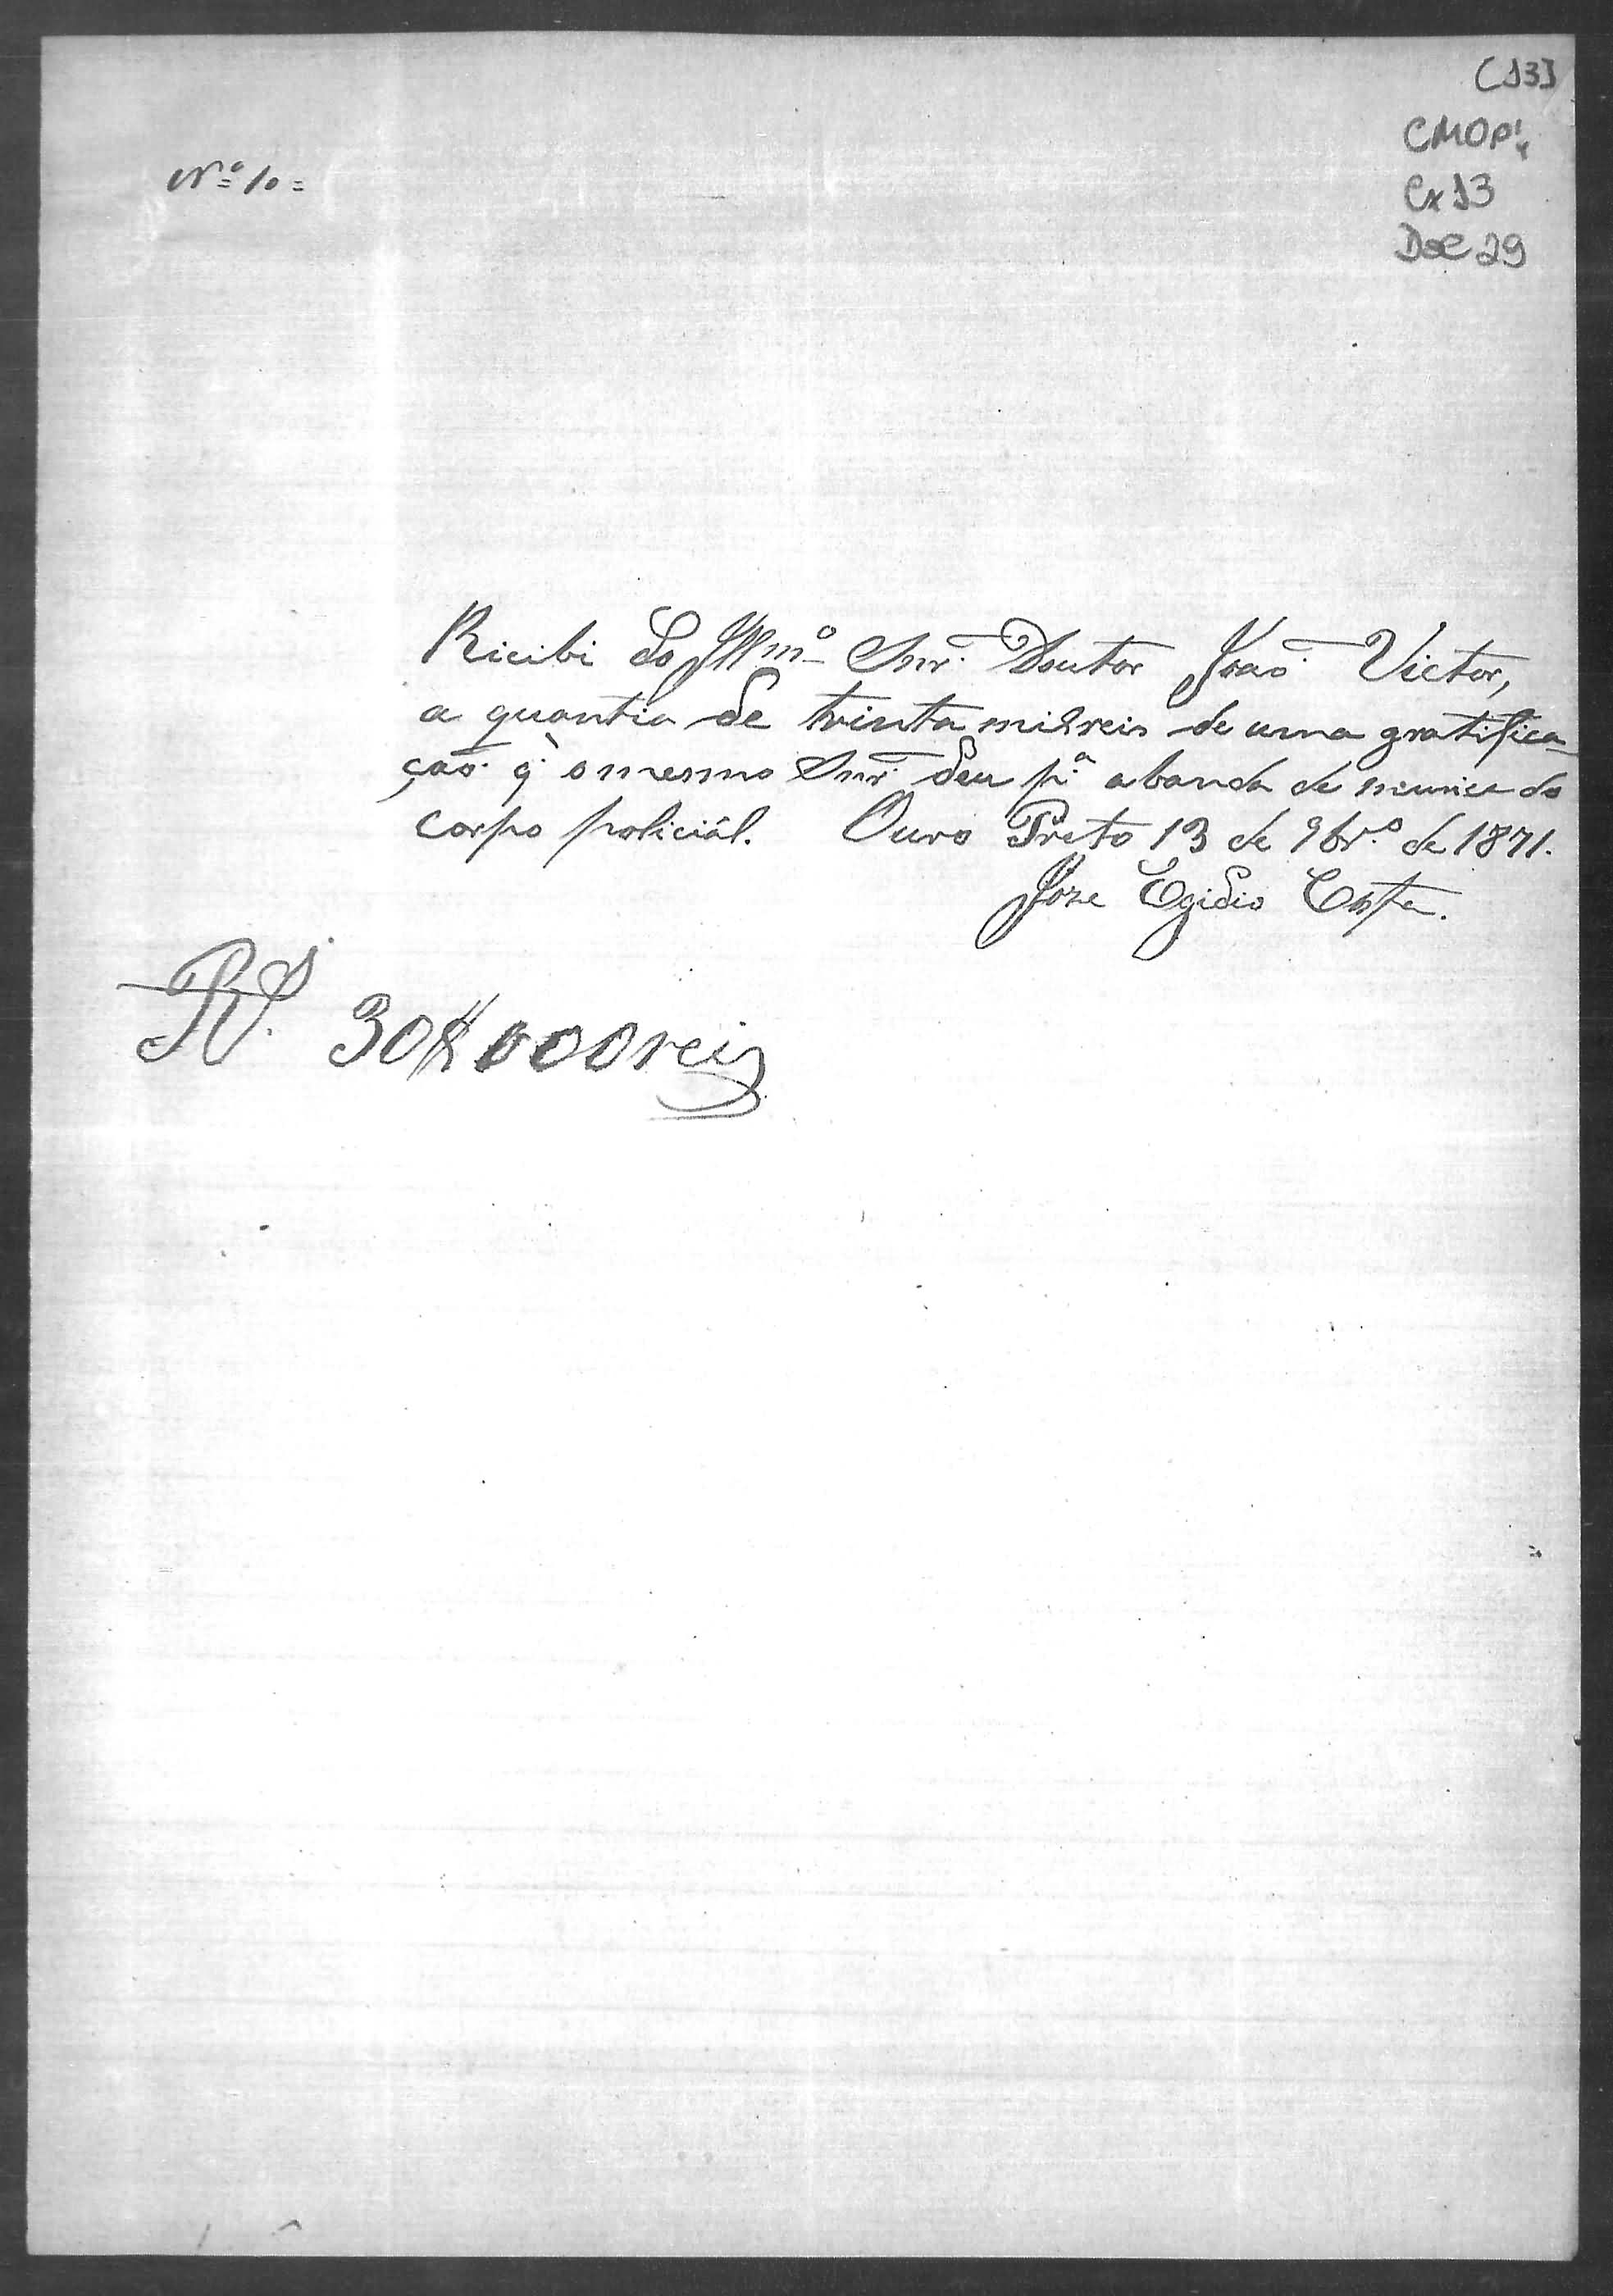 [13]
CMOP
Cx 13
Doc 29
Nº 10 =
Ricibi do Illmº Snr. Doutor João Victor,
a quantia de trinta mil reis de uma gratifica
ção q̀ o mesmo Snr. deu pª a banda de musica do
corpo policiál. Ouro Preto 13 de 9brº de 1871.
Joze Egidio Costa.
RS. 30$000 reis